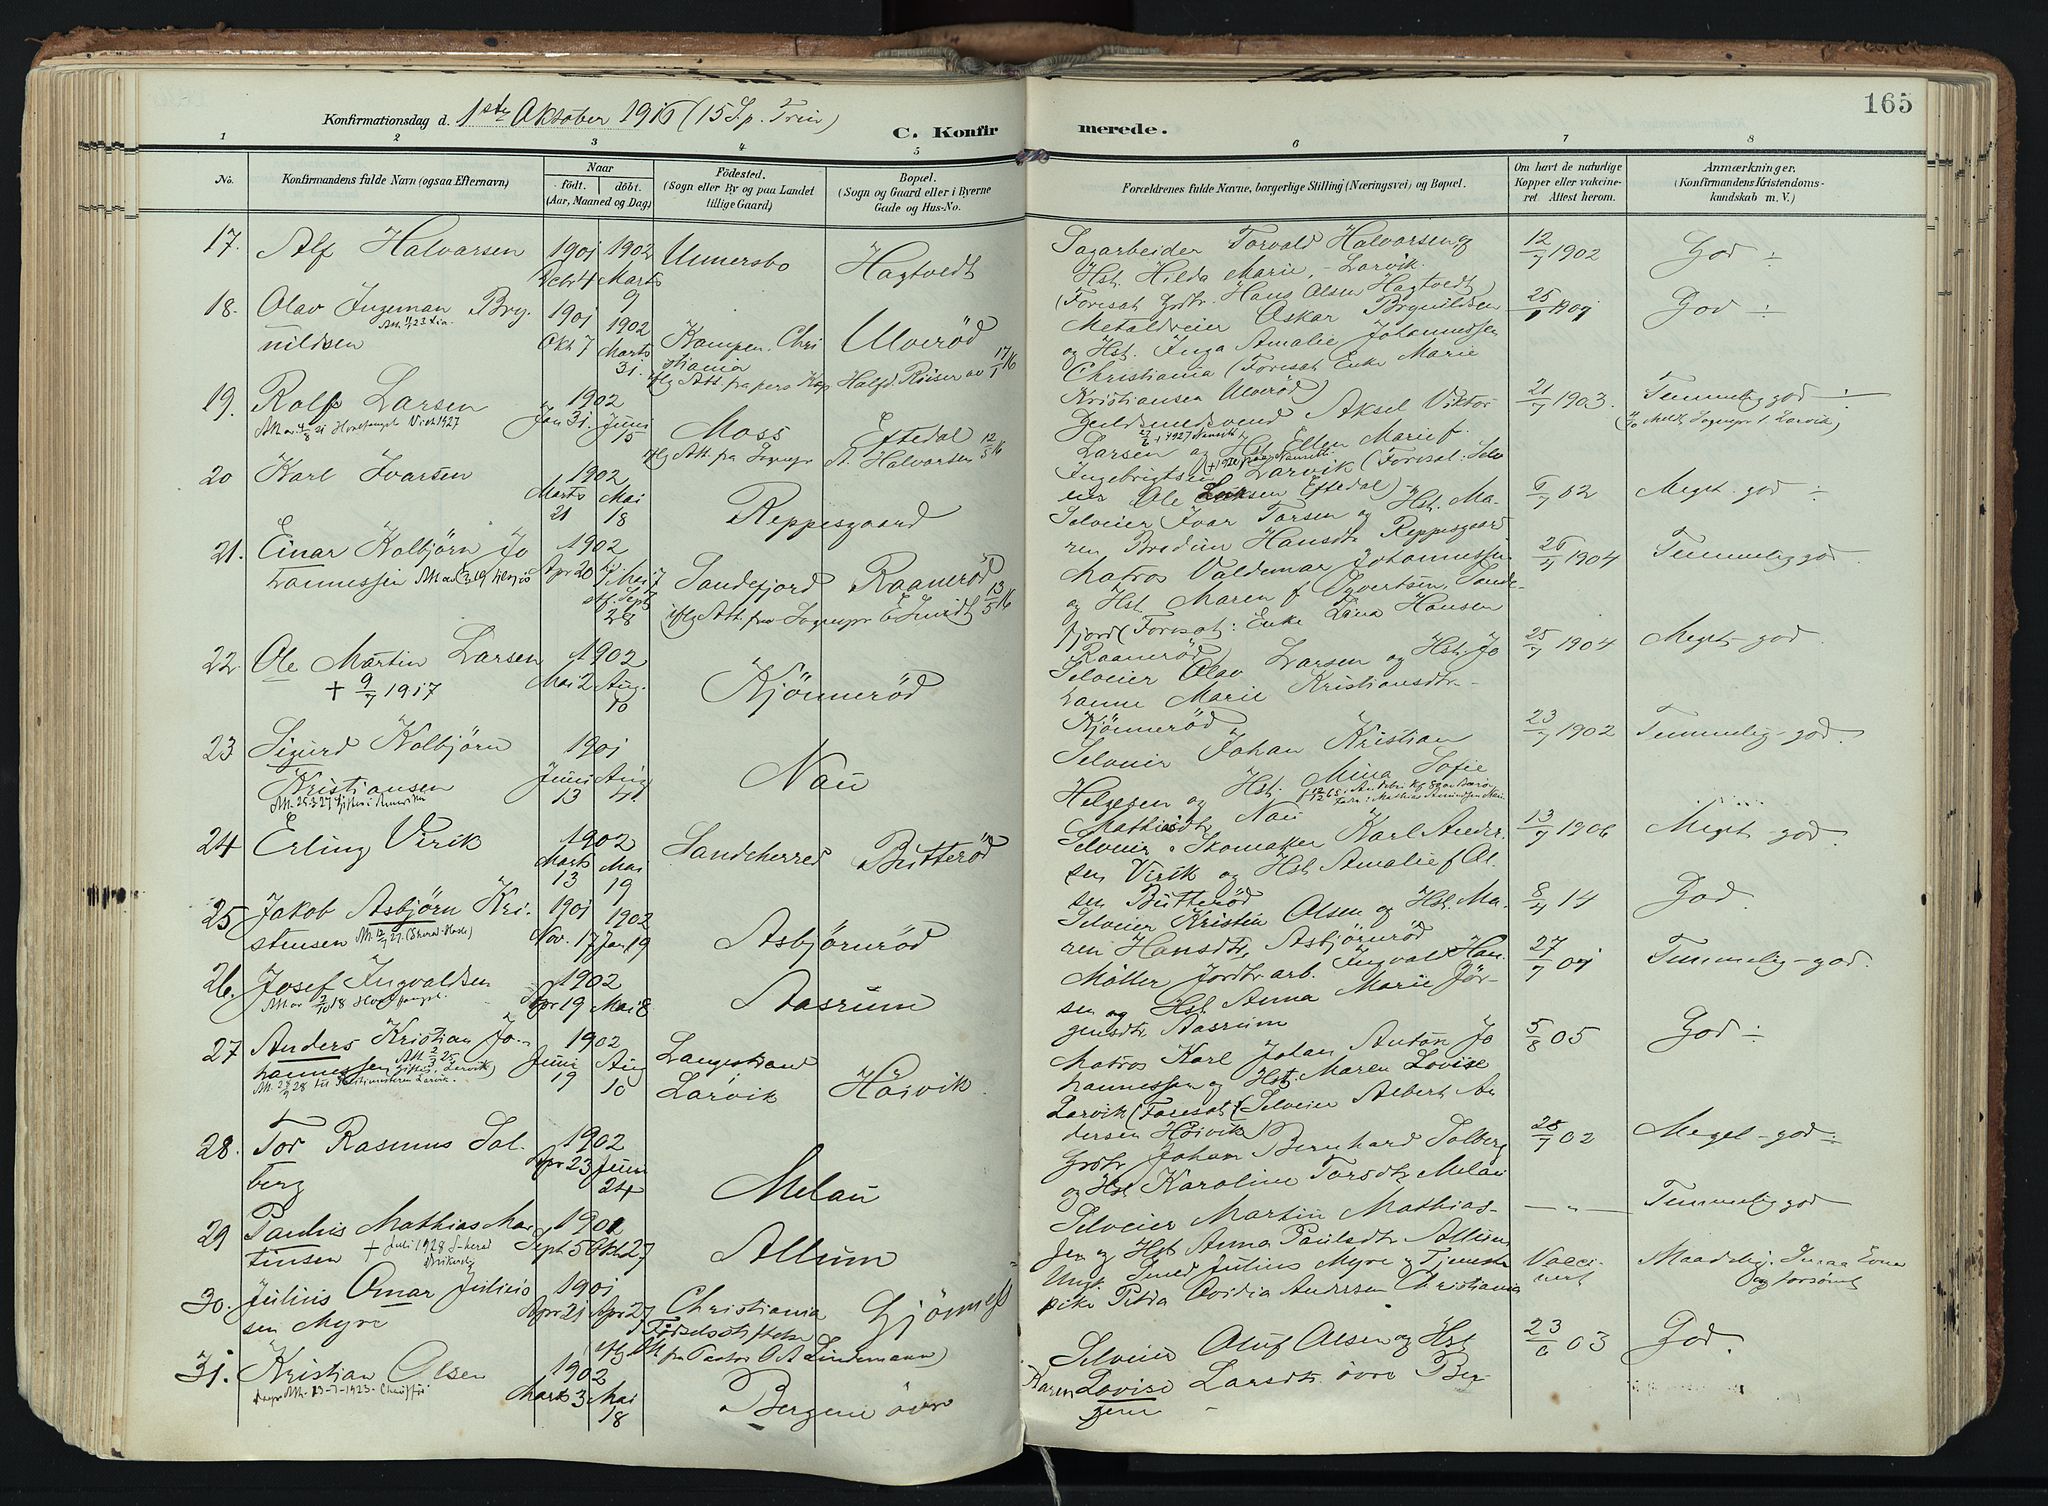 165
Konfirmationsdag d. 1ste Oktober 1916 (15 S. p. Trin)
C. Konfirmerede.
1 2 3 4 5 6 7 8
No.
Konfirmandens fulde Navn (ogsaa Efternavn)
Naar
født. døbt.
(Aar, Maaned og Dag)
Fødested.
(Sogn eller By og paa Landet
tillige Gaard)
Bopæl.
(Sogn og Gaard eller i Byerne
Gade og Hus-No.
Forældrenes fulde Navne, borgerlige Stilling (Næringsvei) og Bopæl.
Om havt de naturlige
Kopper eller vakcine-
ret. Attest herom.
Anmærkninger.
(Konfirmandens Kristendoms-
kundskab m. V.)
17. Alf Halvarsen
1901 Febr 4
1902 Marts 9
Unnersbo
Hagtvedt
Sagarbeider Torvald Halvorsen og
Hst. Hilda Marie, - Larvik.
(Foresat Grdbr. Hans Olsen Hagtvedt)
12/7 1902
God ÷
18. Olav Ingeman Bry
nildsen
1901 Okt 7
1902 Marts 31.
Kampen. Chri
stiania
Ulveröd
Oskar Brynildsen
og Hst. Inga Amalie Johannessen
Christiania (Foresat Enke Marie
Kristiansen Ulveröd)
God ÷
19. Rolf Larsen
1902
Jan 31. Juni 15
Moss
Eftedal
A. Halvorsen 12/5 16
Aksel Viktor
Larsen og Hst Ellen Marie f.
Ingebrigtsen Larvik (Foresat: Selv
eier Ole Eftedal) -
21/7 1903.
Temmelig god ÷
20 Karl Ivarsen
1902
Marts 21
Mai 18
Reppesgaard
Selveier Ivar Torsen og Hst. Ma-
ren Bredine Hansdtr Reppesgaard
6/7 02
Meget god ÷
21. Einar Kolbjörn Jo
hannessen
1902
Apr 20
Sandefjord
Raaneröd
13/5 16
Matros Valdemar Johannessen
og Hst. Maren f Syvertsen, Sande-
fjord (Foresat: Enke Lina Hansen
Raaneröd)
1904
Temmelig god
22. Ole Martin Larsen
+ 9/7 1917
1902
Mai 2 Aug. 10
Kjönneröd
Selveier Olav Larsen og Hst. Jo
hanne Marie Kristiansdtr
Kjönneröd
25/7 1904
Meget god
23 Sigurd Kolbjörn
Kristiansen
1901
Juni 13
Aug 4.
Nau
Selveier Johan Kristian
Helgesen og Hst. Mina Sofie
Mathiasdtr Nau
23/7 1902
Temmelig-god.
24 Erling Virik
1902
Marts 13
Mai 19
Sandeherred
Butteröd
Selveier o Skomaker Karl Ander
sen Virik og Hst Amalie f Ol
sen Butteröd
13/7 1906
Meget-god
25 Jakob Asbjörn Kri-
stensen
1901 1902
Nov. 17 Jan. 19
Asbjörnröd
Selveier Kristen Olsen og Hst. Ma-
ren Hansdtr, Asbjörnröd
14
God.
26. Josef Ingvaldsen
1902
Apr 19 Mai 8
Aasrum
Möller Jordbr.arb. Ingvald Han
sen og Hst Anna Marie Jör-
gensdtr Aasrum
27/7
Temmelig-god.
27 Anders Kristian Jo-
hannessen
1902
Juni 19
Aug 10
Langestrand
Larvik
Höivik
Matros Karl Johan Anton Jo
hannessen og Hst. Maren Lovise
Larvik (Foresat: Selveier Albert An
dersen Höivik)
5/8 05
God ÷
28. Tor Rasmus Sol-
berg
1902
Apr 23 Juni 24
Melau
Grdbr Johan Bernhard Solberg
og Hst Karoline Torsdtr Melau
28/7 02
Meget-god ÷
29 Paulus Mathias Mar
tinsen
+ Juli 1928
1901
Sept 5 Okt 27
Allum
Selveier Martin Mathias-
sen og Hst Anna Paulsdtr Allum
— „ —
Temmelig god
30. Julius Omar Julius
sen Myre
1901
Apr 21 Apr 27
Christiania
Fødselsstiftelse
Gjönness
Ungk Smed Julius Myre og Tjeneste
pike Petra Ovidia Andersen Christiania
Vacci-
nert
31. Kristian Olsen
1902
Marts 3 Mai 18
Bergene övre
Selveier Oluf Olsen og Hst
Karen Lovise Larsdtr övre Ber-
gene
23/6 03
God.